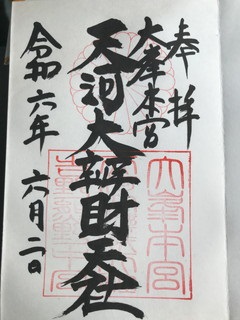 奉拝
大峯本宮
天河大辨財天社
令和六年 六月二日
大峯本宮